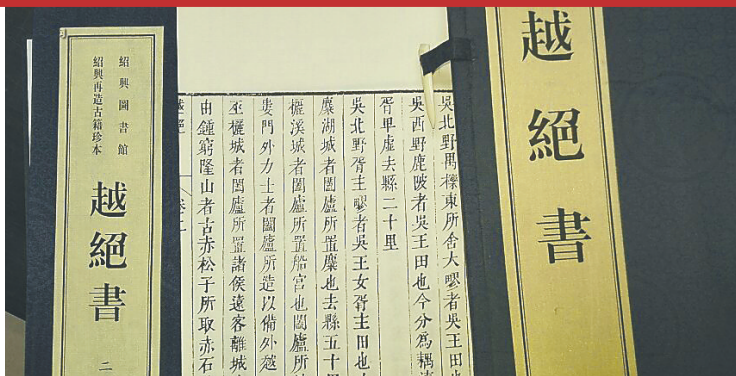 越絕書
吳北野禺櫟東所舍大疁者吳王田也
吳西野鹿陂者吳王田也今分爲耦
胥卑虛去縣二十里
吳北野胥主疁者吳王女胥主田也
麋湖城者闔廬所置麋也去縣五十
欐溪城者闔廬所置船宮也闔廬所
婁門外力士者闔廬所造以備外越
巫欐城者闔廬所置諸侯遠客離城
由鍾窮隆山者古赤松子所取赤石
越絕 卷二
紹興圖書館
紹興再造古籍珍本
越絕書
二